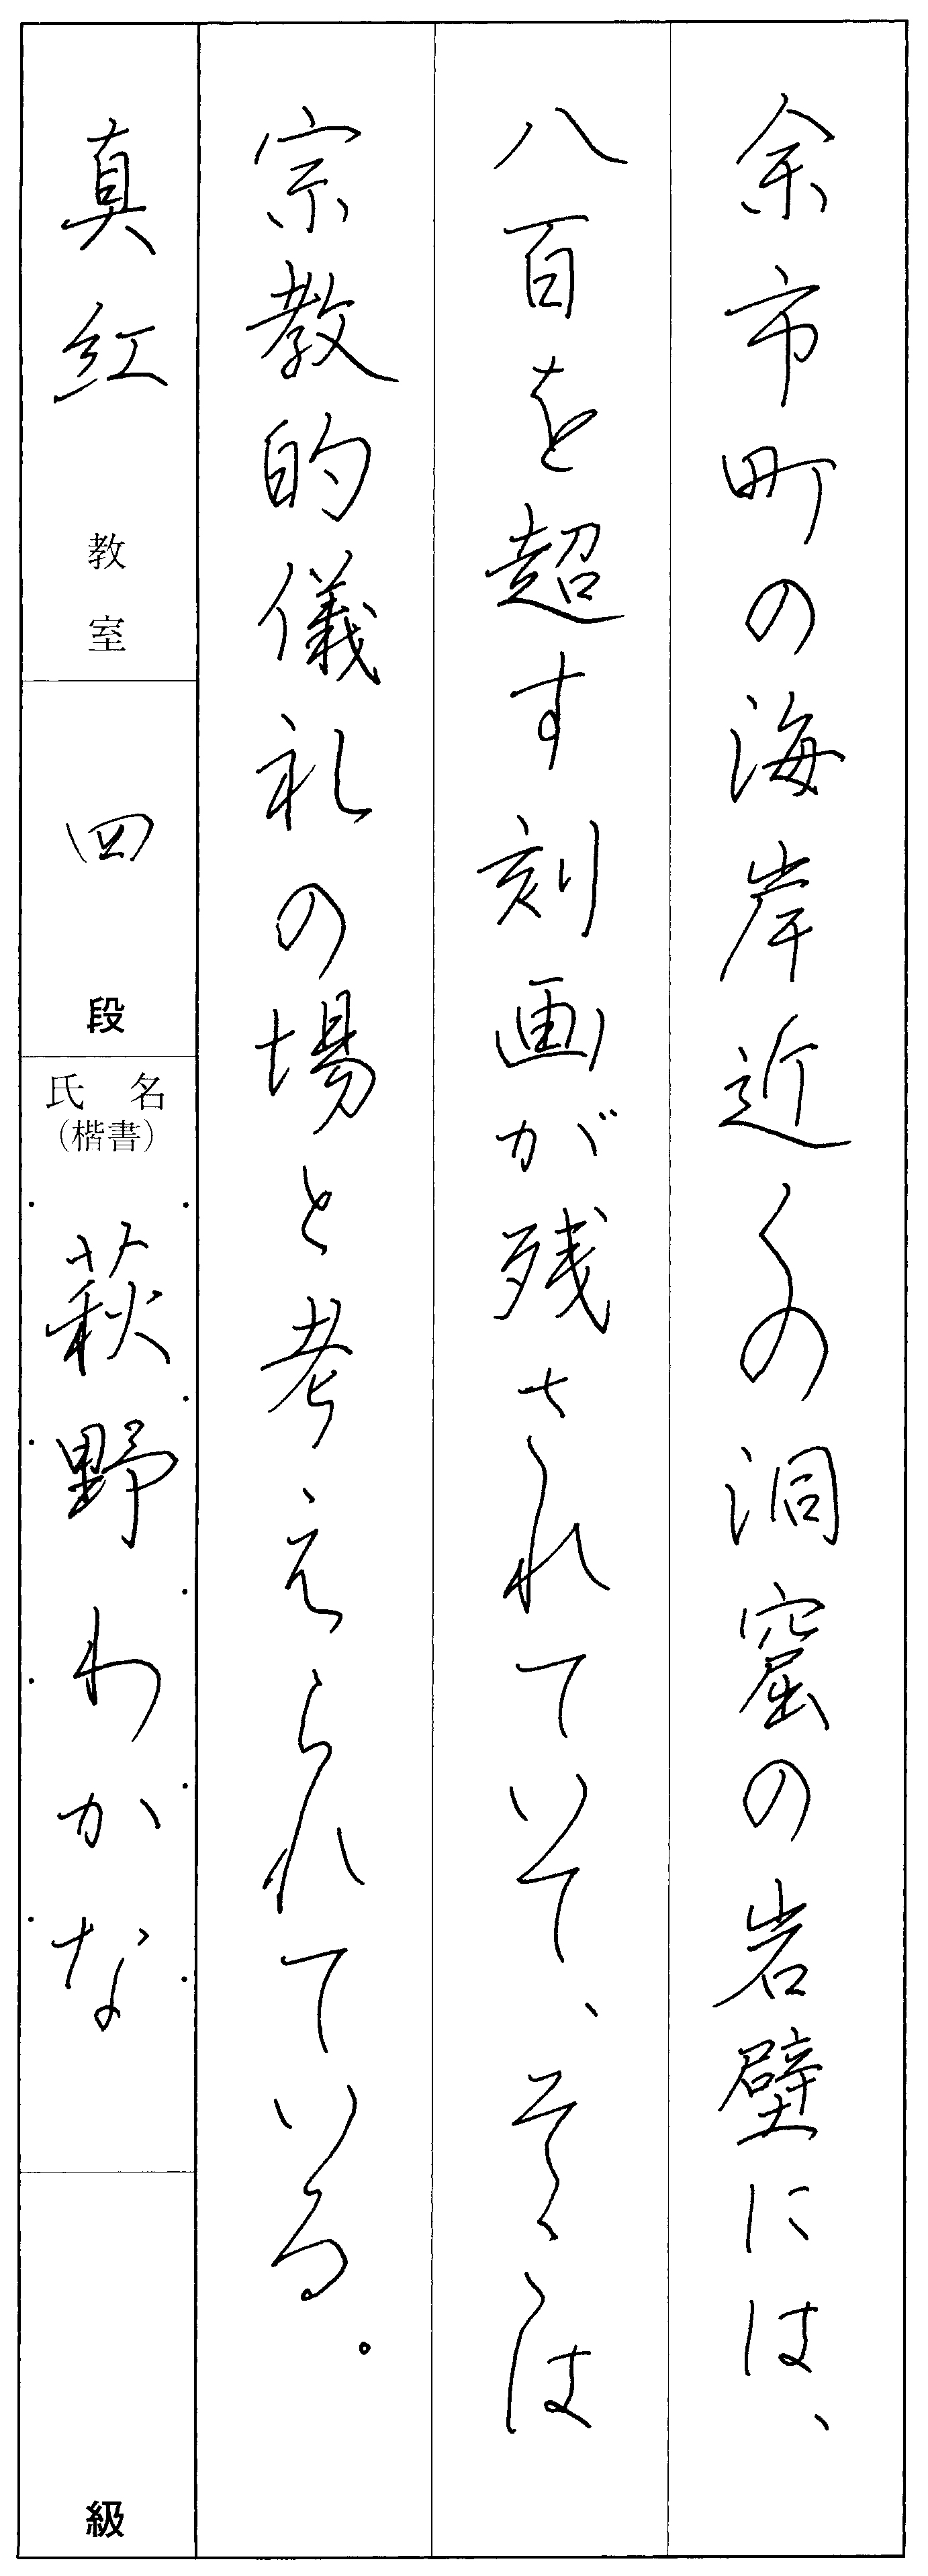 余市町の海岸近くの洞窟の岩壁には、
八百を超す刻画が残されていて、そこは
宗教的儀礼の場と考えられている。
真紅 教室
四 段
氏名
(楷書)
萩野わかな
級